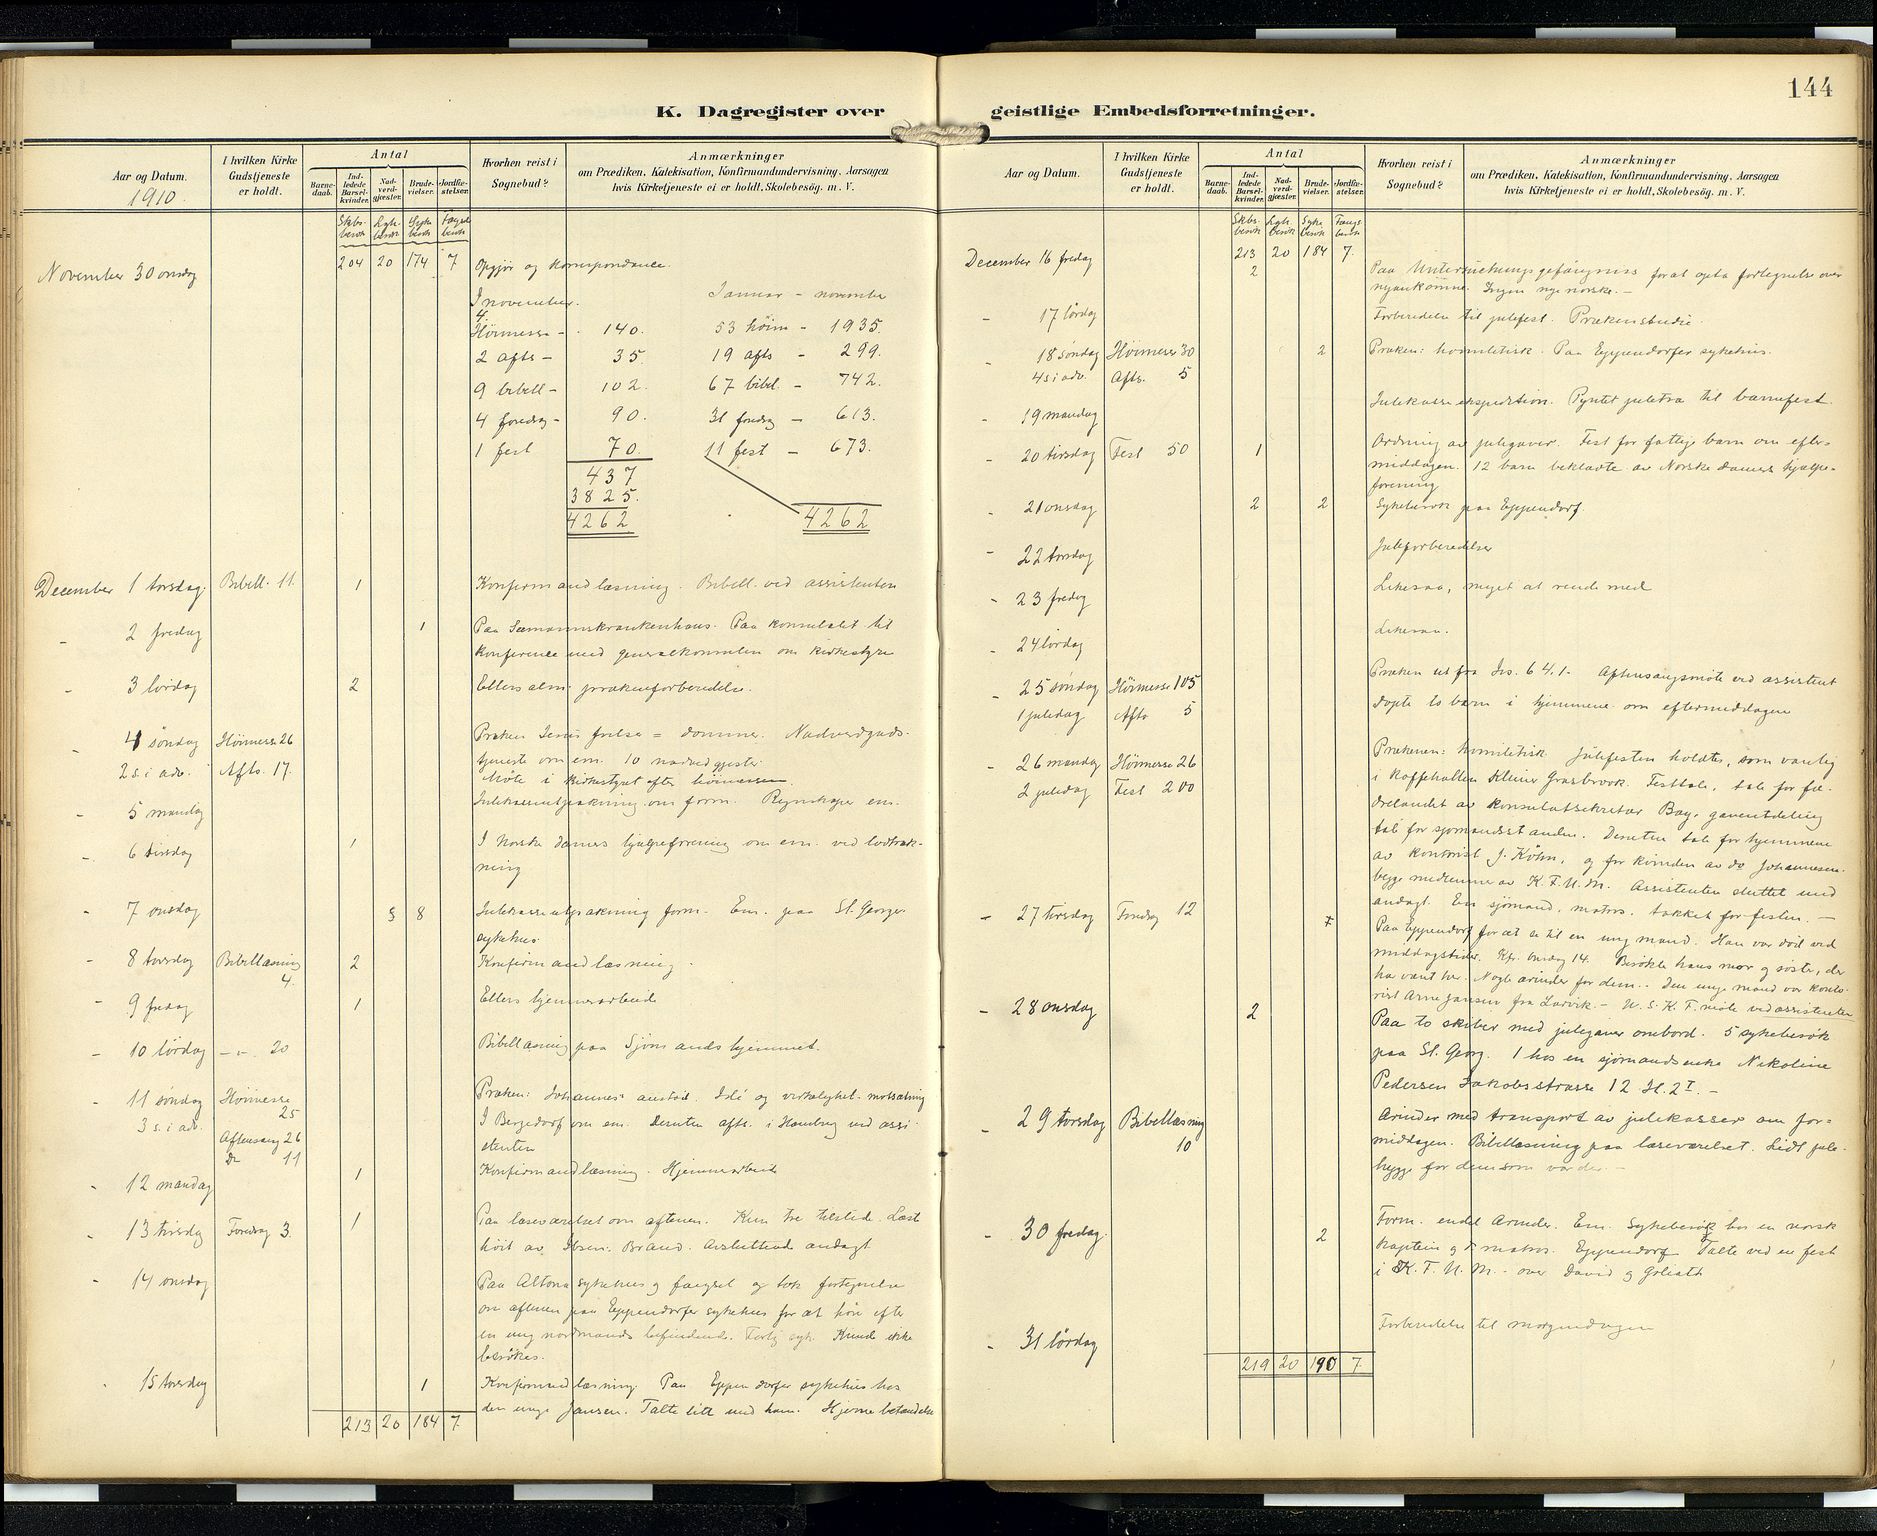 144
K. Dagregister over geistlige Embedsforretninger.
Aar og Datum.
1910.
I hvilken Kirke Gudstjeneste er holdt.
Antal
Barnedaab.
Indledede Barselkvinder.
Nadverdgjæster.
Brudevielser.
Jordfæstelser.
Hvorhen reist i Sognebud?
Anmærkninger
om Prædiken, Katekisation, Konfirmandundervisning, Aarsagen
hvis Kirketjeneste ei er holdt, Skolebesög, m. V.
Skbs. besøk
besøk
Syke besøk
besøk
204 20 174 7
November 30 onsdag
Opgjør og korrespondance.
I november. Januar - november
4. Höimesse - 140. 53 höim - 1935.
2 afts - 35 19 afts - 299.
9 bibell - 102. 67 bibel - 742.
4 foredrag - 90. 31 foredrag - 613.
1 fest 70. 11 fest - 673.
437
3825.
4262 4262
December 1 torsdag. Bibell. 11. 1 Konfirmandlæsning. Bibell. ved assistenten
2 fredag 1 Paa Seemannskrankenhaus. Paa konsulatet til
konference med generalkonsulen om kirkestyre
3 lördag 2 Ellers alm. prækenforberedelse.
4 söndag Höimesse 26 Præken Jesus frelse = dommer. Nadverdguds-
2 s. i adv. Afts. 17. tjeneste om em. 10 nadverdgjester.
Möte i kirkestyret efter höimessen
5 mandag Julekasseutpakning om form. Regnskaper em.
6 tirsdag 1 I norske damers hjælpeforening om em. ved lodtræk-
ning
7 onsdag 5 8 Julekasseutpakning form. Em. paa St. Georgs
sykehus.
8 torsdag Bibellæsning 4. 2 Konfirmandlæsning.
9 fredag 1 Ellers hjemmearbeide
10 lördag -"- 20 Bibellæsning paa Sjömandshjemmet.
11 söndag Höimesse 25 Præken: Johannes' anstöd. Ide og virkelighet. motsætning
3 s. i adv. Aftensang 26 I Bergedorf om em. Desuten afts. i Hamburg ved assi-
Do 11 stenten
12 mandag 1 Konfirmandlæsning. Hjemmearbeide
13 tirsdag Foredrag 3. 1 Paa læseværelset om aftenen. Kun tre tilstede. Læst
höit av Ibsen: Brand. Avsluttende andagt
14 onsdag Paa Altona sykehus og fængsel og tok fortegnelse
om aftenen paa Eppendorfer sykehus for at höre efter
en ung nordmands befindende. Farlig syk. Kunde ikke
besökes.
15 torsdag 1 Konfirmandlæsning. Paa Eppendorfer sykehus hos
den unge Jansen. Talte litt med ham. Hjerne betændelse
213 20 184 7
Aar og Datum.
I hvilken Kirke Gudstjeneste er holdt.
Antal
Barnedaab.
Indledede Barselkvinder.
Nadverdgjæster.
Brudevielser.
Jordfæstelser.
Hvorhen reist i Sognebud?
Anmærkninger
om Prædiken, Katekisation, Konfirmandundervisning, Aarsagen
hvis Kirketjeneste ei er holdt, Skolebesög, m. V.
Skbs. besøk
besøk
Syke besøk
Fængs. besøk
213 20 184 7.
December 16 fredag 2 Paa Untersuchungsgefängniss for at opta fortegnelse over
nyankomne. Ingen nye norske. -
17 lördag Forberedelse til julefest. Prækenstudie.
18 söndag Höimesse 30 2 Præken: homiletisk. Paa Eppendorfer sykehus.
4 s i adv. Afts. 5
19 mandag Julekasseekspedition. Pyntet juletræ til barnefest.
20 tirsdag Fest 50 1 Ordning av julegaver. Fest for fattige barn om efter-
middagen. 12 barn beklædte av Norske damers hjælpe-
forening
21 onsdag 2 2 Sykebesøk paa Eppendorf.
22 torsdag Juleforberedelser
23 fredag Likesaa, meget at rende med
24 lördag Likesaa.
25 söndag Höimesse 105 Præken ut fra Jes. 64.1. Aftensangsmöte ved assistent
1 juledag Afts 5 Döpte to barn i hjemmene om eftermiddagen
26 mandag Höimesse 26 Prækenen: homiletisk. Julefesten holdtes, som vanlig
2 juledag Fest 200 i kaffehallen Kleiner Grasbrook. Festtale, tale for fæ-
drelandet av konsulatsekretær Bay, gaveutdeling
tale for sjomandsstanden. Desuten tale for hjemmene
av kontorist J. Köhn, og for kvinden av do Johannesen.
begge medlemmer av K. F. U. M. Assistenten sluttet med
andagt. En sjömand, matros. takket for festen. -
27 tirsdag Foredrag 12 Paa Eppendorf for at se til en ung mand. Han var död ved
middagstider. Kfr. onsdag 14. Besökte hans mor og söster, der
har været her. Nogle ærinder for dem. - Den unge mand var konto-
rist Arne Jansen fra Larvik. - U. S. K. F. möte ved assistenten
28 onsdag 2 Paa to skiber med julegaver ombord. 5 sykebesøk
paa St. Georg. 1 hos en sjømandsenke Nikoline
Pedersen Jakobsstrasse 12 H. 2 I. -
29 torsdag Bibellæsning 10 Ærinder med transport av julekasser om for-
middagen. Bibellæsning paa læseværelset. Lidt jule-
hygge for dem som var der. -
30 fredag. 2 Form. endel ærinder. Em. sykebesøk hos en norsk
kaptein og matros. Eppendorf. Talte ved en fest
i K. F. U. M. - over David og Goliath
31 lördag Forberedelse til morgendagen
219 20 190 7.